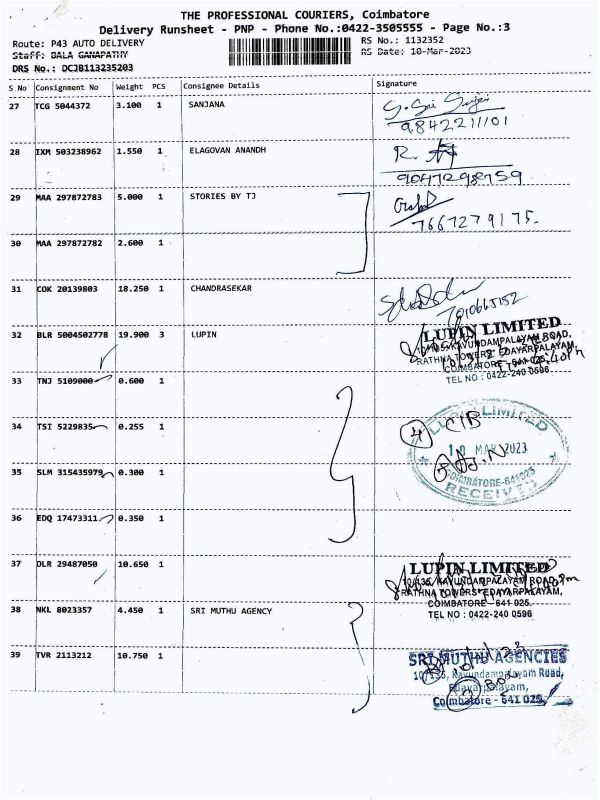 THE PROFESSIONAL COURIERS, Coimbatore
Delivery Runsheet - PNP - Phone No.:0422-3505555 - Page No.:3
Route: P43 AUTO DELIVERY RS No.: 1132352
Staff: BALA GANAPATHY RS Date: 10-Mar-2023
DRS No.: DCJB113235203
S No Consignment No Weight PCS Consignee Details Signature
27 TCG 5044372 3.100 1 SANJANA
9842211101
28 IXM 503238962 1.550 1 ELAGOVAN ANANDH R.
29 MAA 297872783 5.000 1 STORIES BY TJ
7667279175.
30 MAA 297872782 2.600 1
31 COK 20139803 18.250 1 CHANDRASEKAR
7010665152
32 BLR 5004502778 19.900 3 LUPIN LUPIN LIMITED
KAVUNDAMPALAYAM ROAD,
RATHNA TOWERS EDAYARPALAYAM,
COIMBATORE - 641 025.
TEL NO : 0422-240 0596
33 TNJ 5109000 0.600 1
34 TSI 5229835 0.255 1 LUPIN LIMITED
4 CIB
10 MAR 2023
35 SLM 315435979 0.300 1 COIMBATORE-641025
RECEIVED
36 EDQ 17473311 0.350 1
37 OLR 29487050 10.650 1 LUPIN LIMITED
10/135, KAVUNDAMPALAYAM ROAD,
RATHNA TOWERS EDAYARPALAYAM,
COIMBATORE - 641 025.
TEL NO : 0422-240 0596
38 NKL 8023357 4.450 1 SRI MUTHU AGENCY
39 TVR 2113212 10.750 1 SRI MUTHU AGENCIES
10/135, Kavundampalayam Road,
Edayarpalayam,
Coimbatore - 641 025